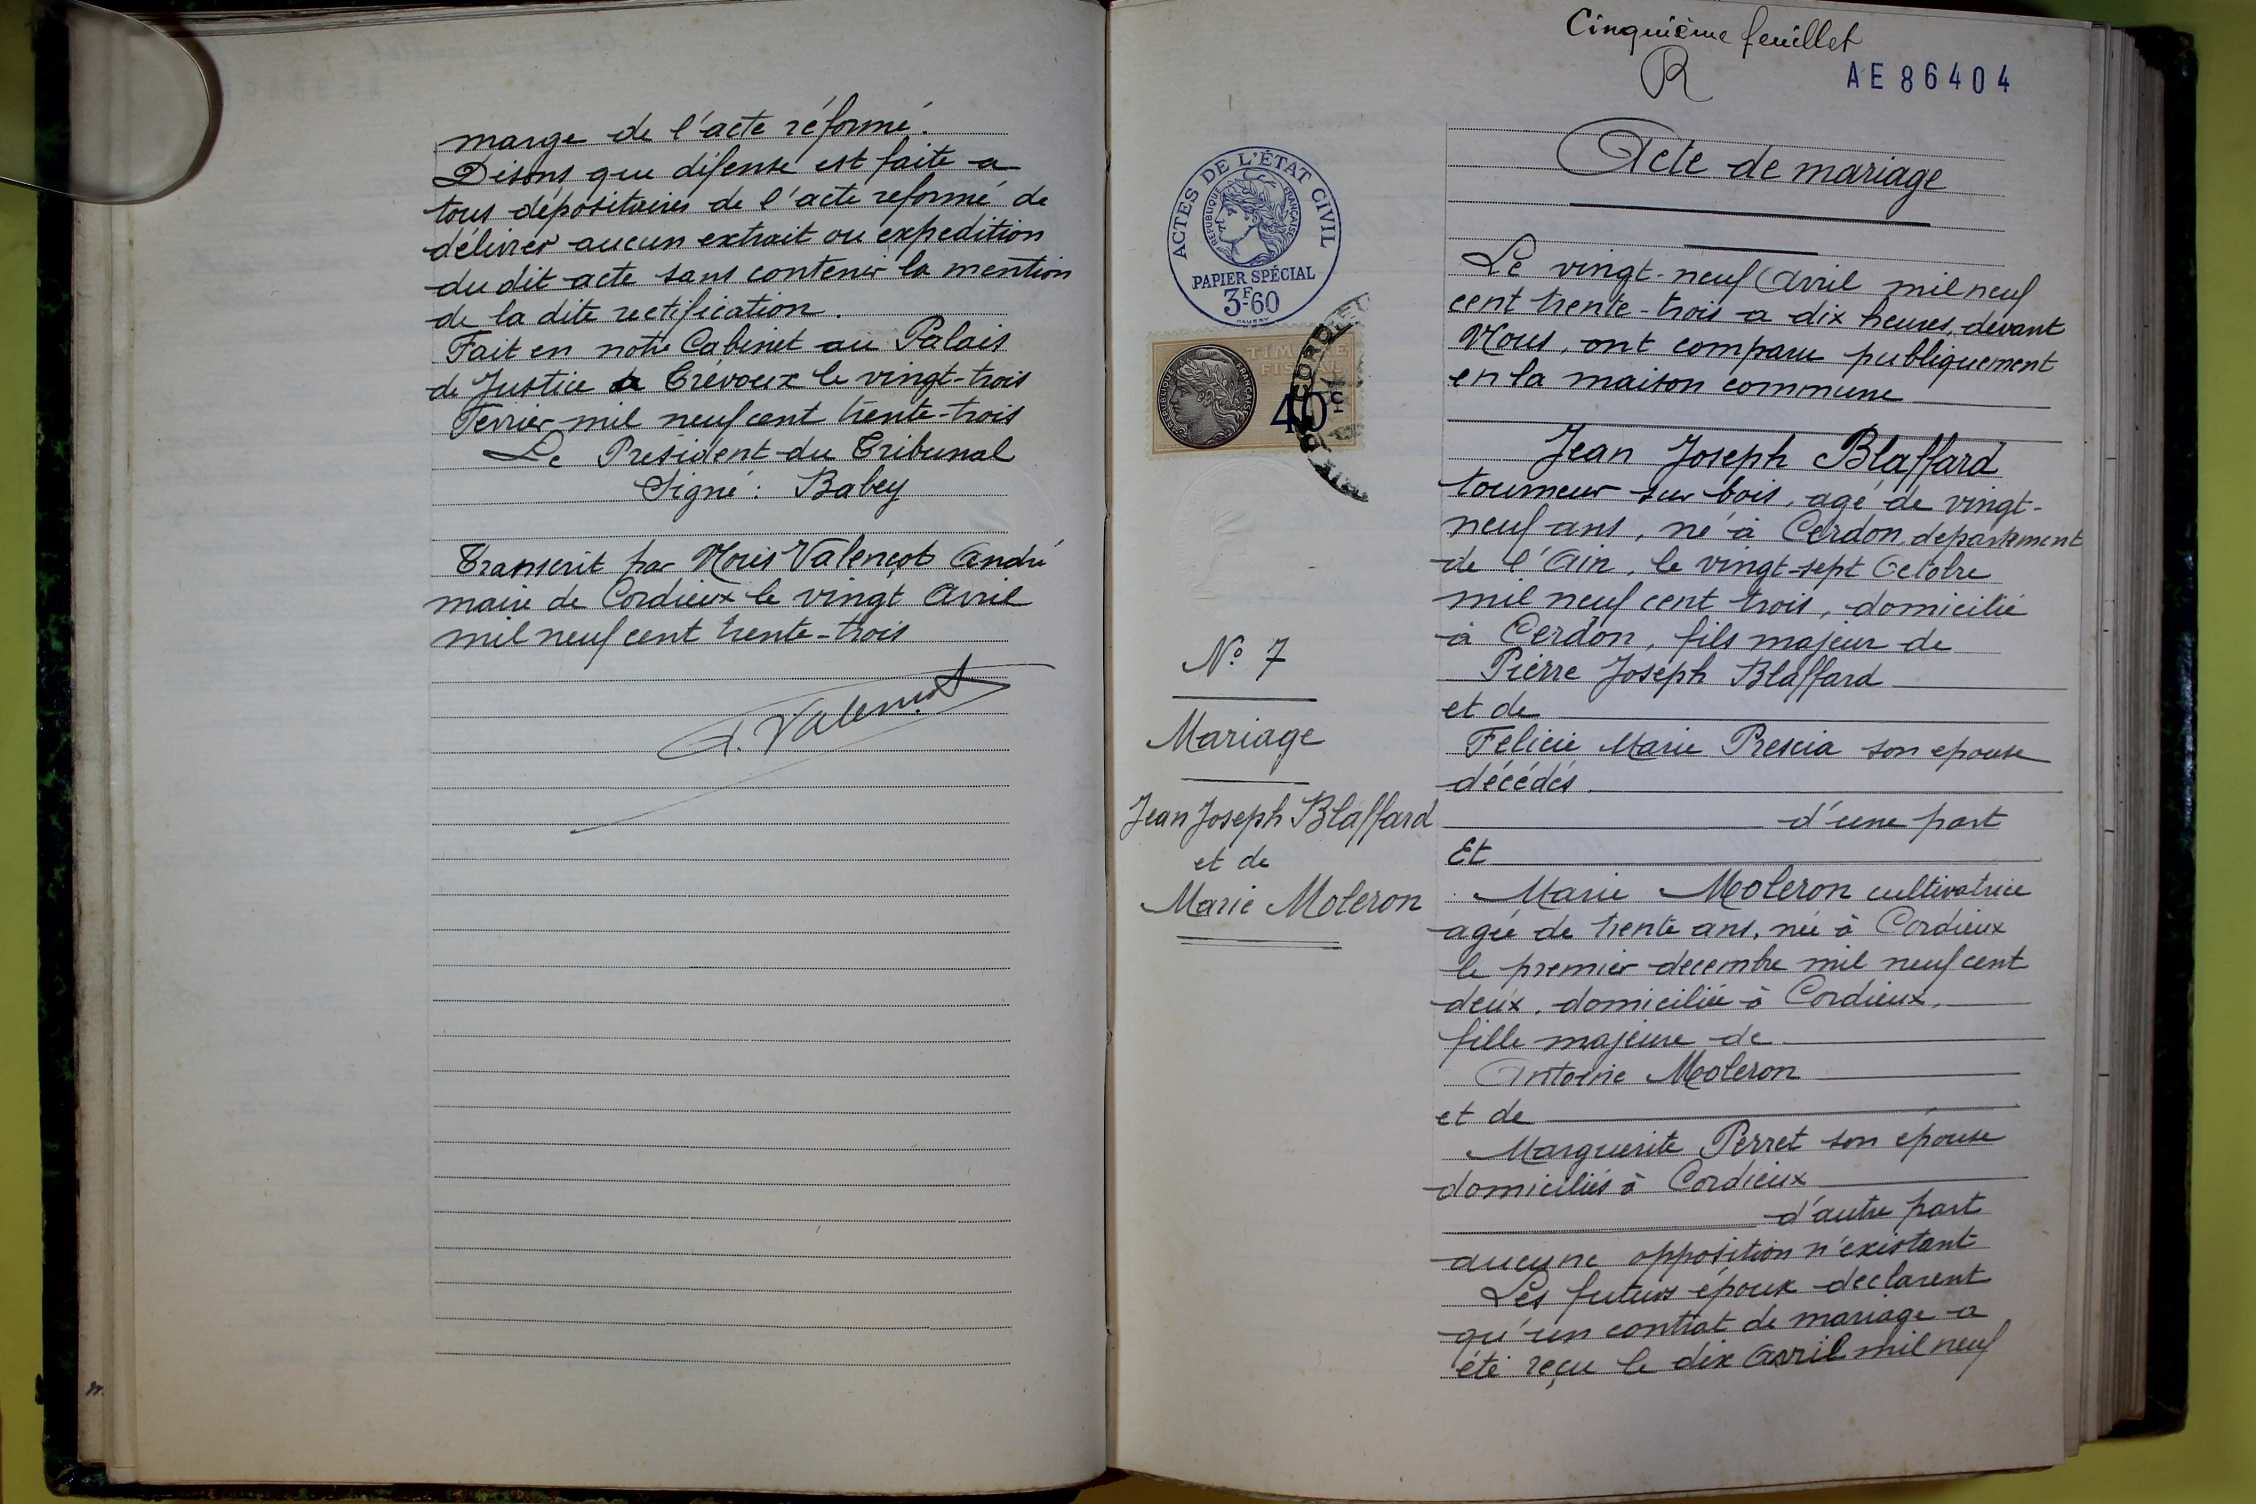 marge de l'acte réformé.
Disons que défense est faite a
tous dépositaires de l'acte reformé de
délivrer aucun extrait ou expedition
du dit acte sans contenir la mention
de la dite rectification.
Fait en notre Cabinet au Palais
de Justice de Trévoux le vingt-trois
Fevrier mil neuf cent trente-trois
Le Président du Tribunal
Signé : Babey
Transcrit par Nous Valençot André
maire de Cordieux le vingt Avril
mil neuf cent trente-trois
A. Valençot
Cinquième feuillet
R
AE 86404
ACTES DE L'ÉTAT CIVIL
RÉPUBLIQUE FRANÇAISE
PAPIER SPÉCIAL
3F60
TIMBRE
FISCAL
RÉPUBLIQUE FRANÇAISE
40c
N° 7
Mariage
Jean Joseph Blaffard
et de
Marie Moleron
Acte de mariage
Le vingt-neuf Avril mil neuf
cent trente-trois a dix heures, devant
Nous, ont comparu publiquement
en la maison commune
Jean Joseph Blaffard
tourneur sur bois, agé de vingt-
neuf ans, né à Cerdon, departement
de l'Ain, le vingt-sept Octobre
mil neuf cent trois, domicilié
à Cerdon, fils majeur de
Pierre Joseph Blaffard
et de
Félicie Marie Prescia son epouse
décédés.
d'une part
Et
Marie Moleron cultivatrice
agée de trente ans, née à Cordieux
le premier decembre mil neuf cent
deux, domiciliée à Cordieux,
fille majeure de
Antoine Moleron
et de
Marguerite Perret son épouse
domiciliés à Cordieux
d'autre part
aucune opposition n'existant
Les futurs époux declarent
qu'un contrat de mariage a
été reçu le dix Avril mil neuf